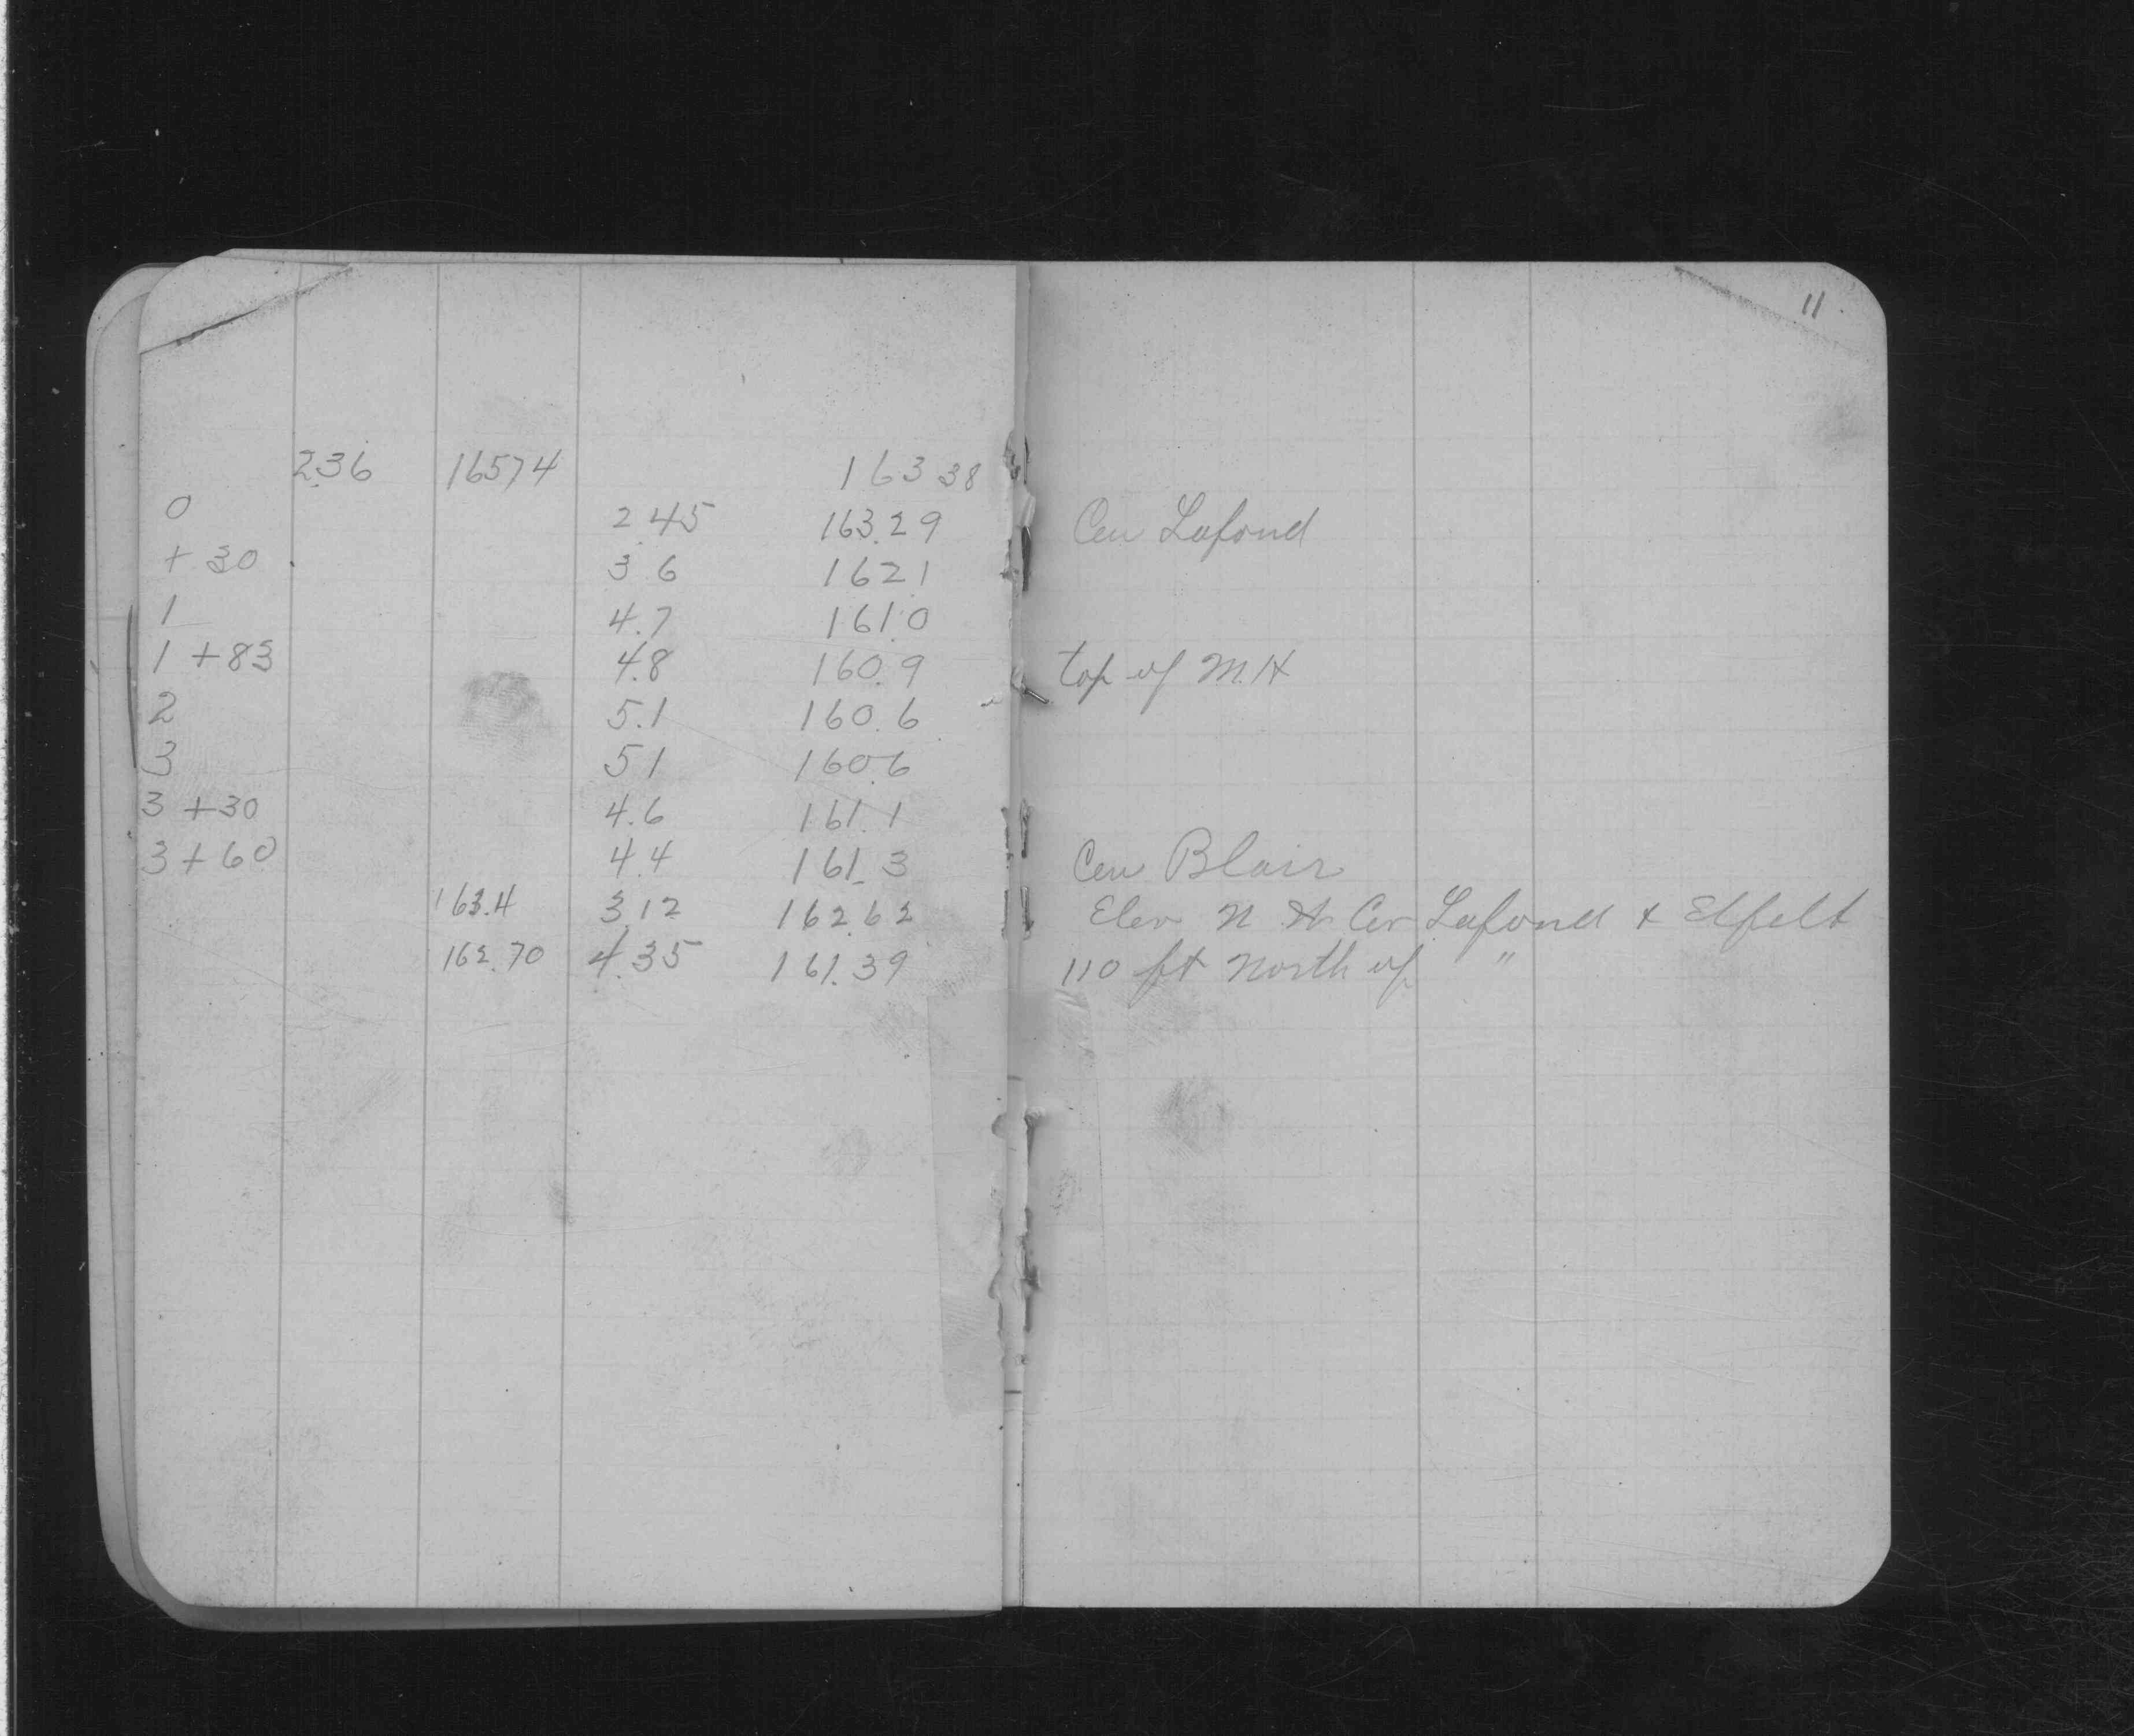 11.
2.36 16574 163 38
0 2.45 163.29 Cen Lafond
+ 30 3 6 162 1
1 4.7 161.0
1 +83 4.8 160.9 top of M.H
2 5.1 160.6
3 5 1 160.6
3 +30 4.6 161.1
3 + 60 4.4 161.3 Cen Blair
163.4 3.12 162.62 Elev N Cor Lafond + Elfelt
162.70 4.35 161.39 110 ft North of "